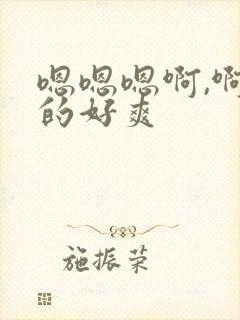 嗯嗯嗯啊,啊
的好爽
施振荣